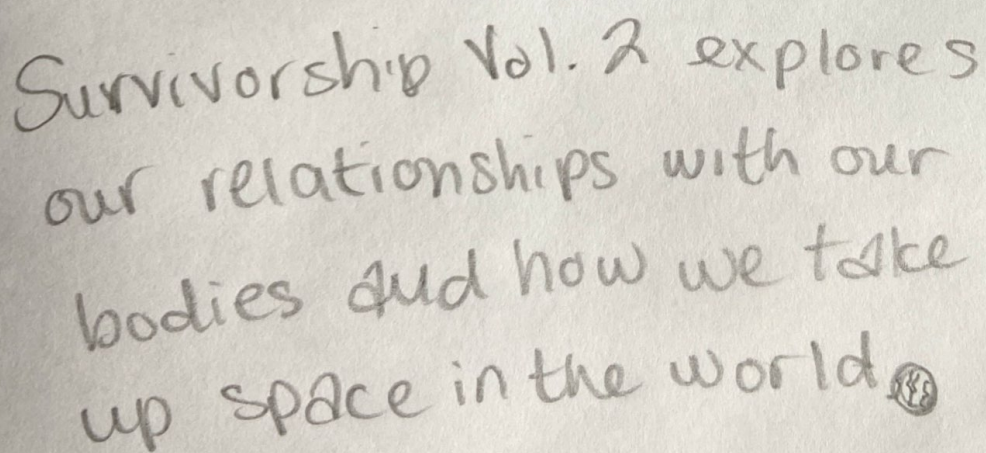 Survivorship Vol. 2 explores
our relationships with our
bodies and how we take
up space in the world.